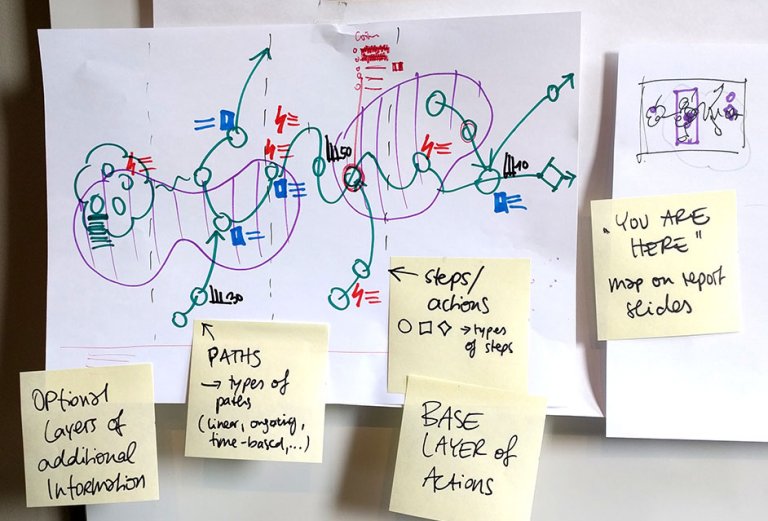 50
40
30
"YOU ARE
HERE"
map on report
slides
← steps/
actions
→ types
of steps
PATHS
→ types of
paths
(linear, ongoing,
time-based,...)
OPtional
layers of
additional
Information
BASE
LAYER of
Actions